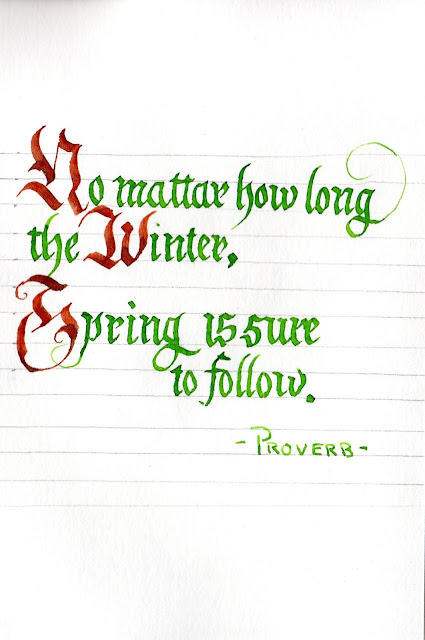 No mattar how long
the Winter,
Spring is sure
to follow.
- PROVERB -